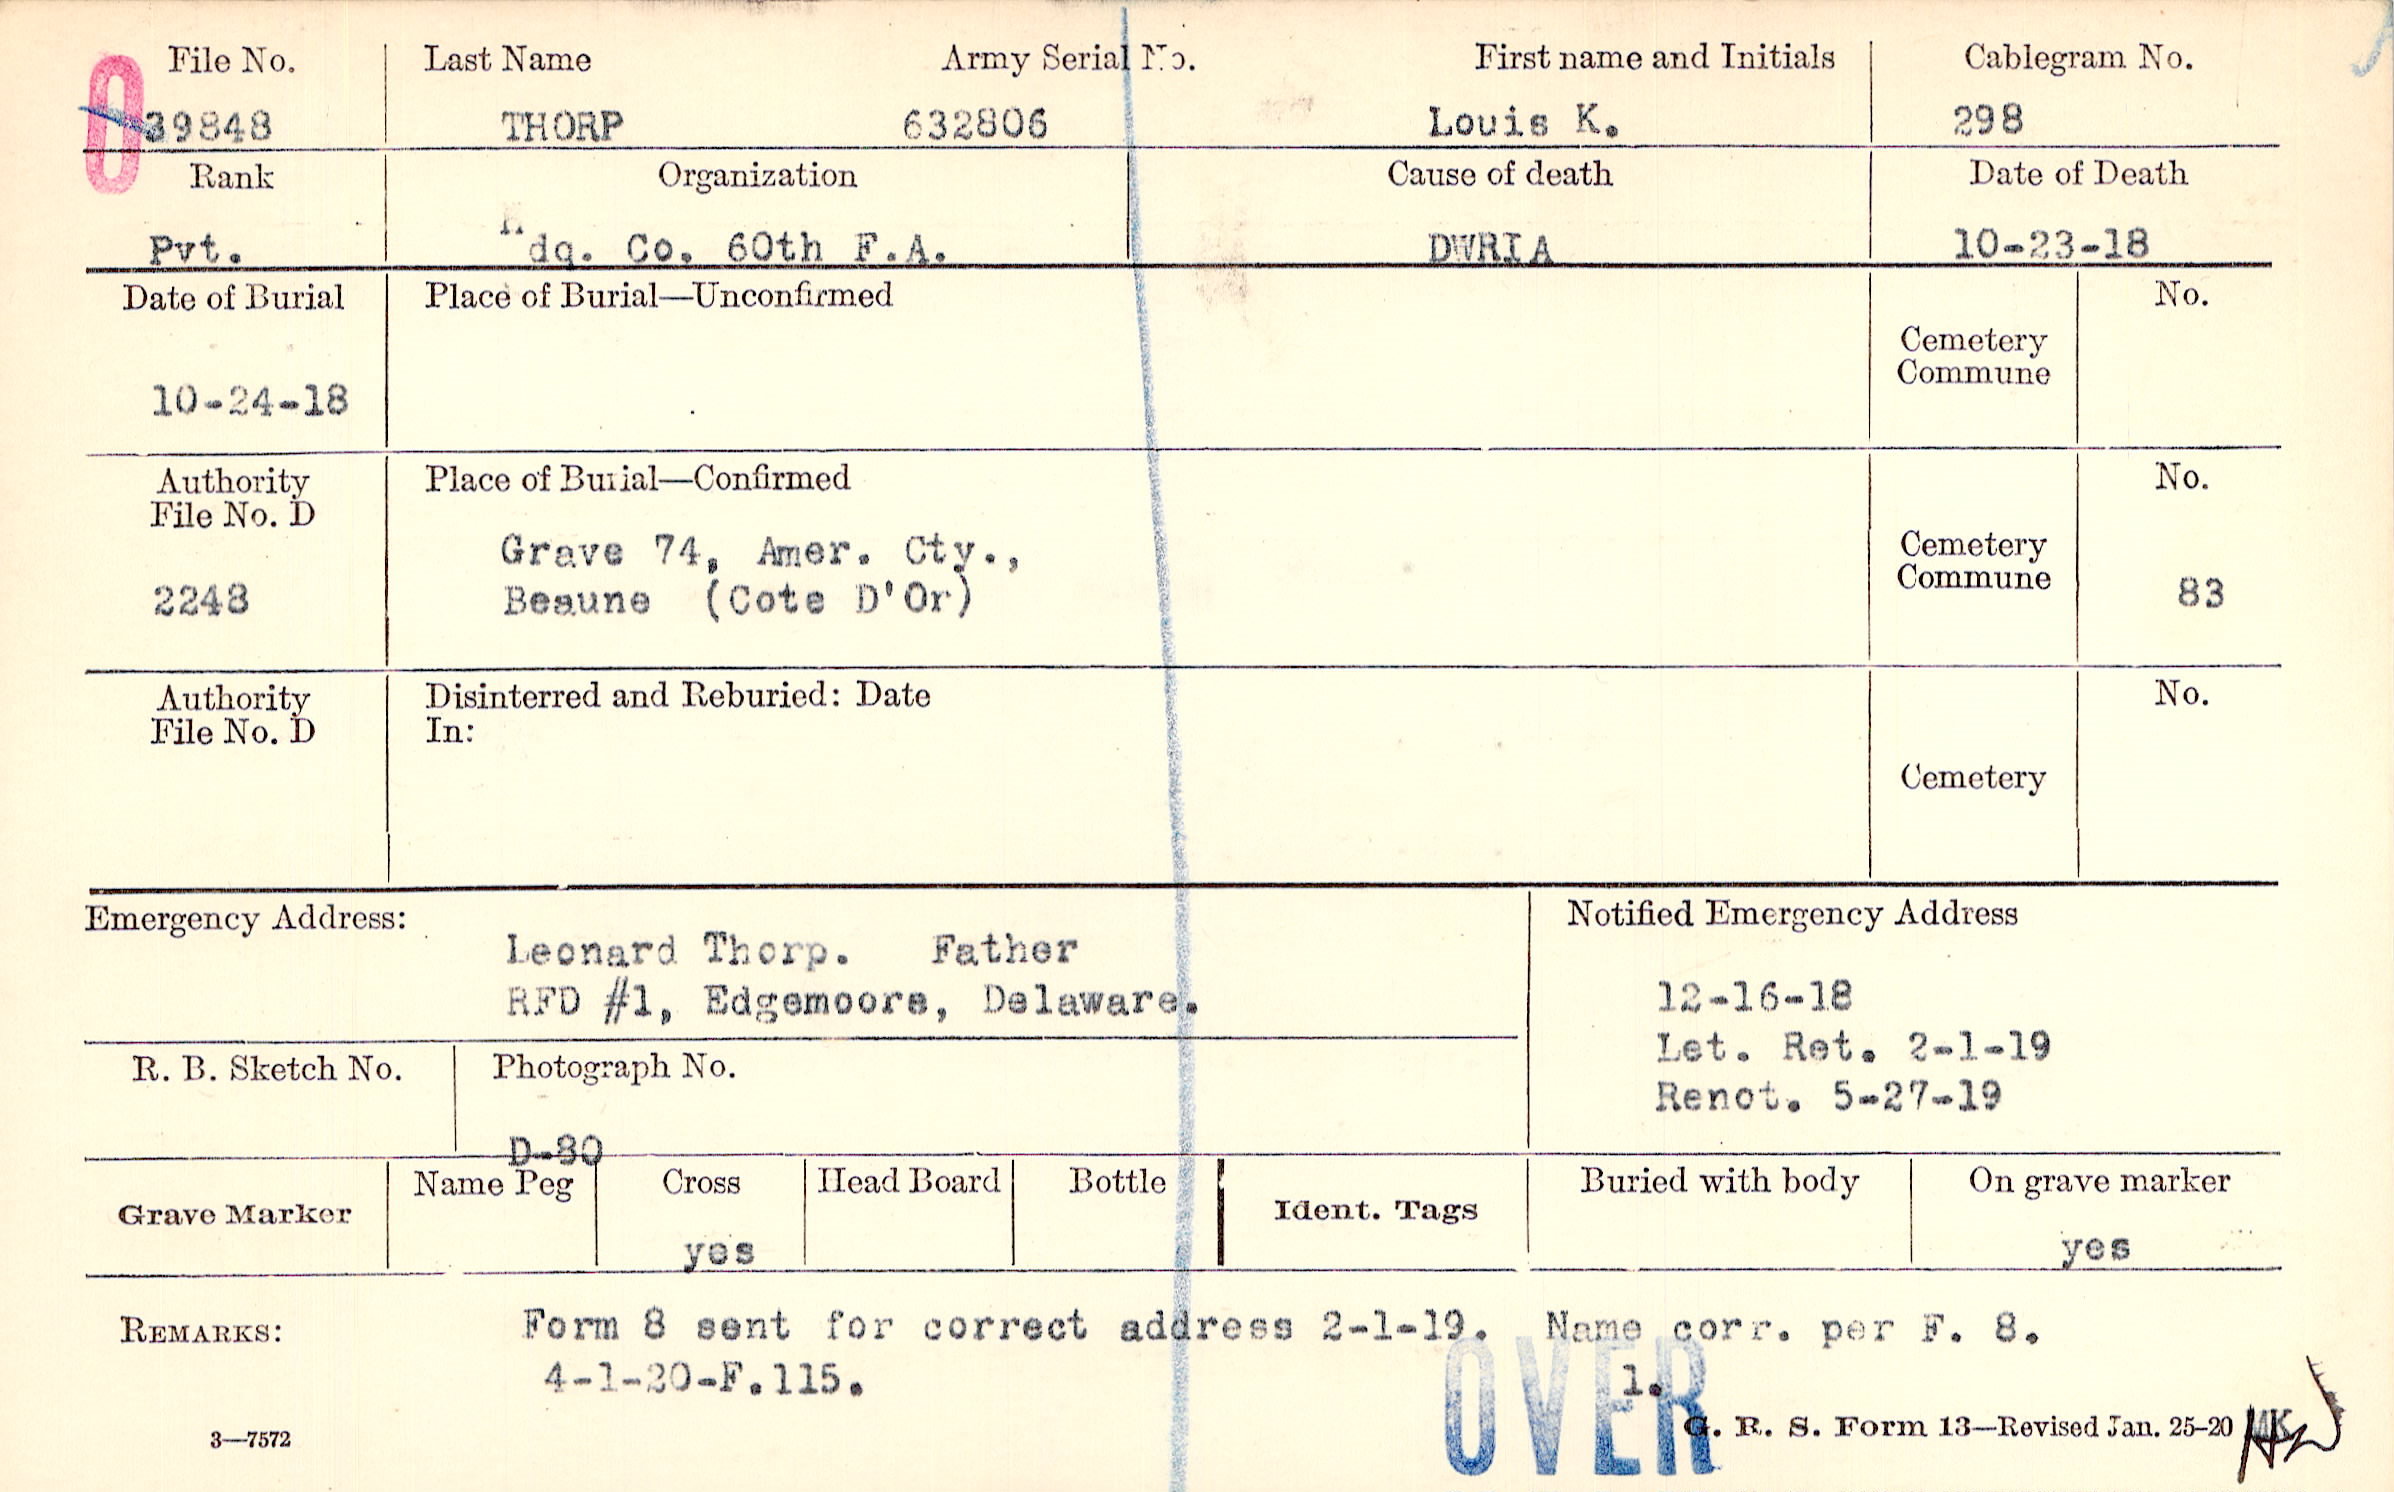 File No. Last Name Army Serial No. First name and Initials Cablegram No.
0
39848 THORP 632806 Louis K. 298
Rank Organization Cause of death Date of Death
Pvt. Hdq. Co. 60th F.A. DWRIA 10-23-18
Date of Burial Place of Burial—Unconfirmed No.
Cemetery
Commune
10-24-18
Authority Place of Burial—Confirmed No.
File No. D
Grave 74, Amer. Cty., Cemetery
Commune
2248 Beaune (Cote D'Or) 83
Authority Disinterred and Reburied: Date No.
File No. D In:
Cemetery
Emergency Address: Notified Emergency Address
Leonard Thorp. Father
RFD #1, Edgemoore, Delaware. 12-16-18
Let. Ret. 2-1-19
R. B. Sketch No. Photograph No.
Renot. 5-27-19
D-80
Grave Marker Name Peg Cross Head Board Bottle Ident. Tags Buried with body On grave marker
yes yes
REMARKS: Form 8 sent for correct address 2-1-19. Name corr. per F. 8.
4-1-20-F.115. 1.
OVER
3—7572 G. R. S. Form 13—Revised Jan. 25-20